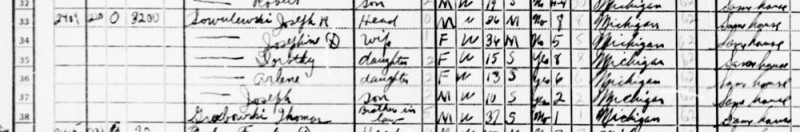 32 Robert son M W 19 S Michigan Same house
33 2409 20 O 3200 Sowulewski Joseph R Head M W 36 M No 8 Michigan Same house
34 — Josephine D Wife F W 34 M No 5 Michigan Same house
35 — Dorothy daughter F W 15 S Yes 8 Michigan Same house
36 — Arlene daughter F W 13 S Yes 6 Michigan Same house
37 — Joseph son M W 10 S Yes 2 Michigan Same house
38 Grabowski Thomas Brother in law M W 37 S No 1 Michigan Same house